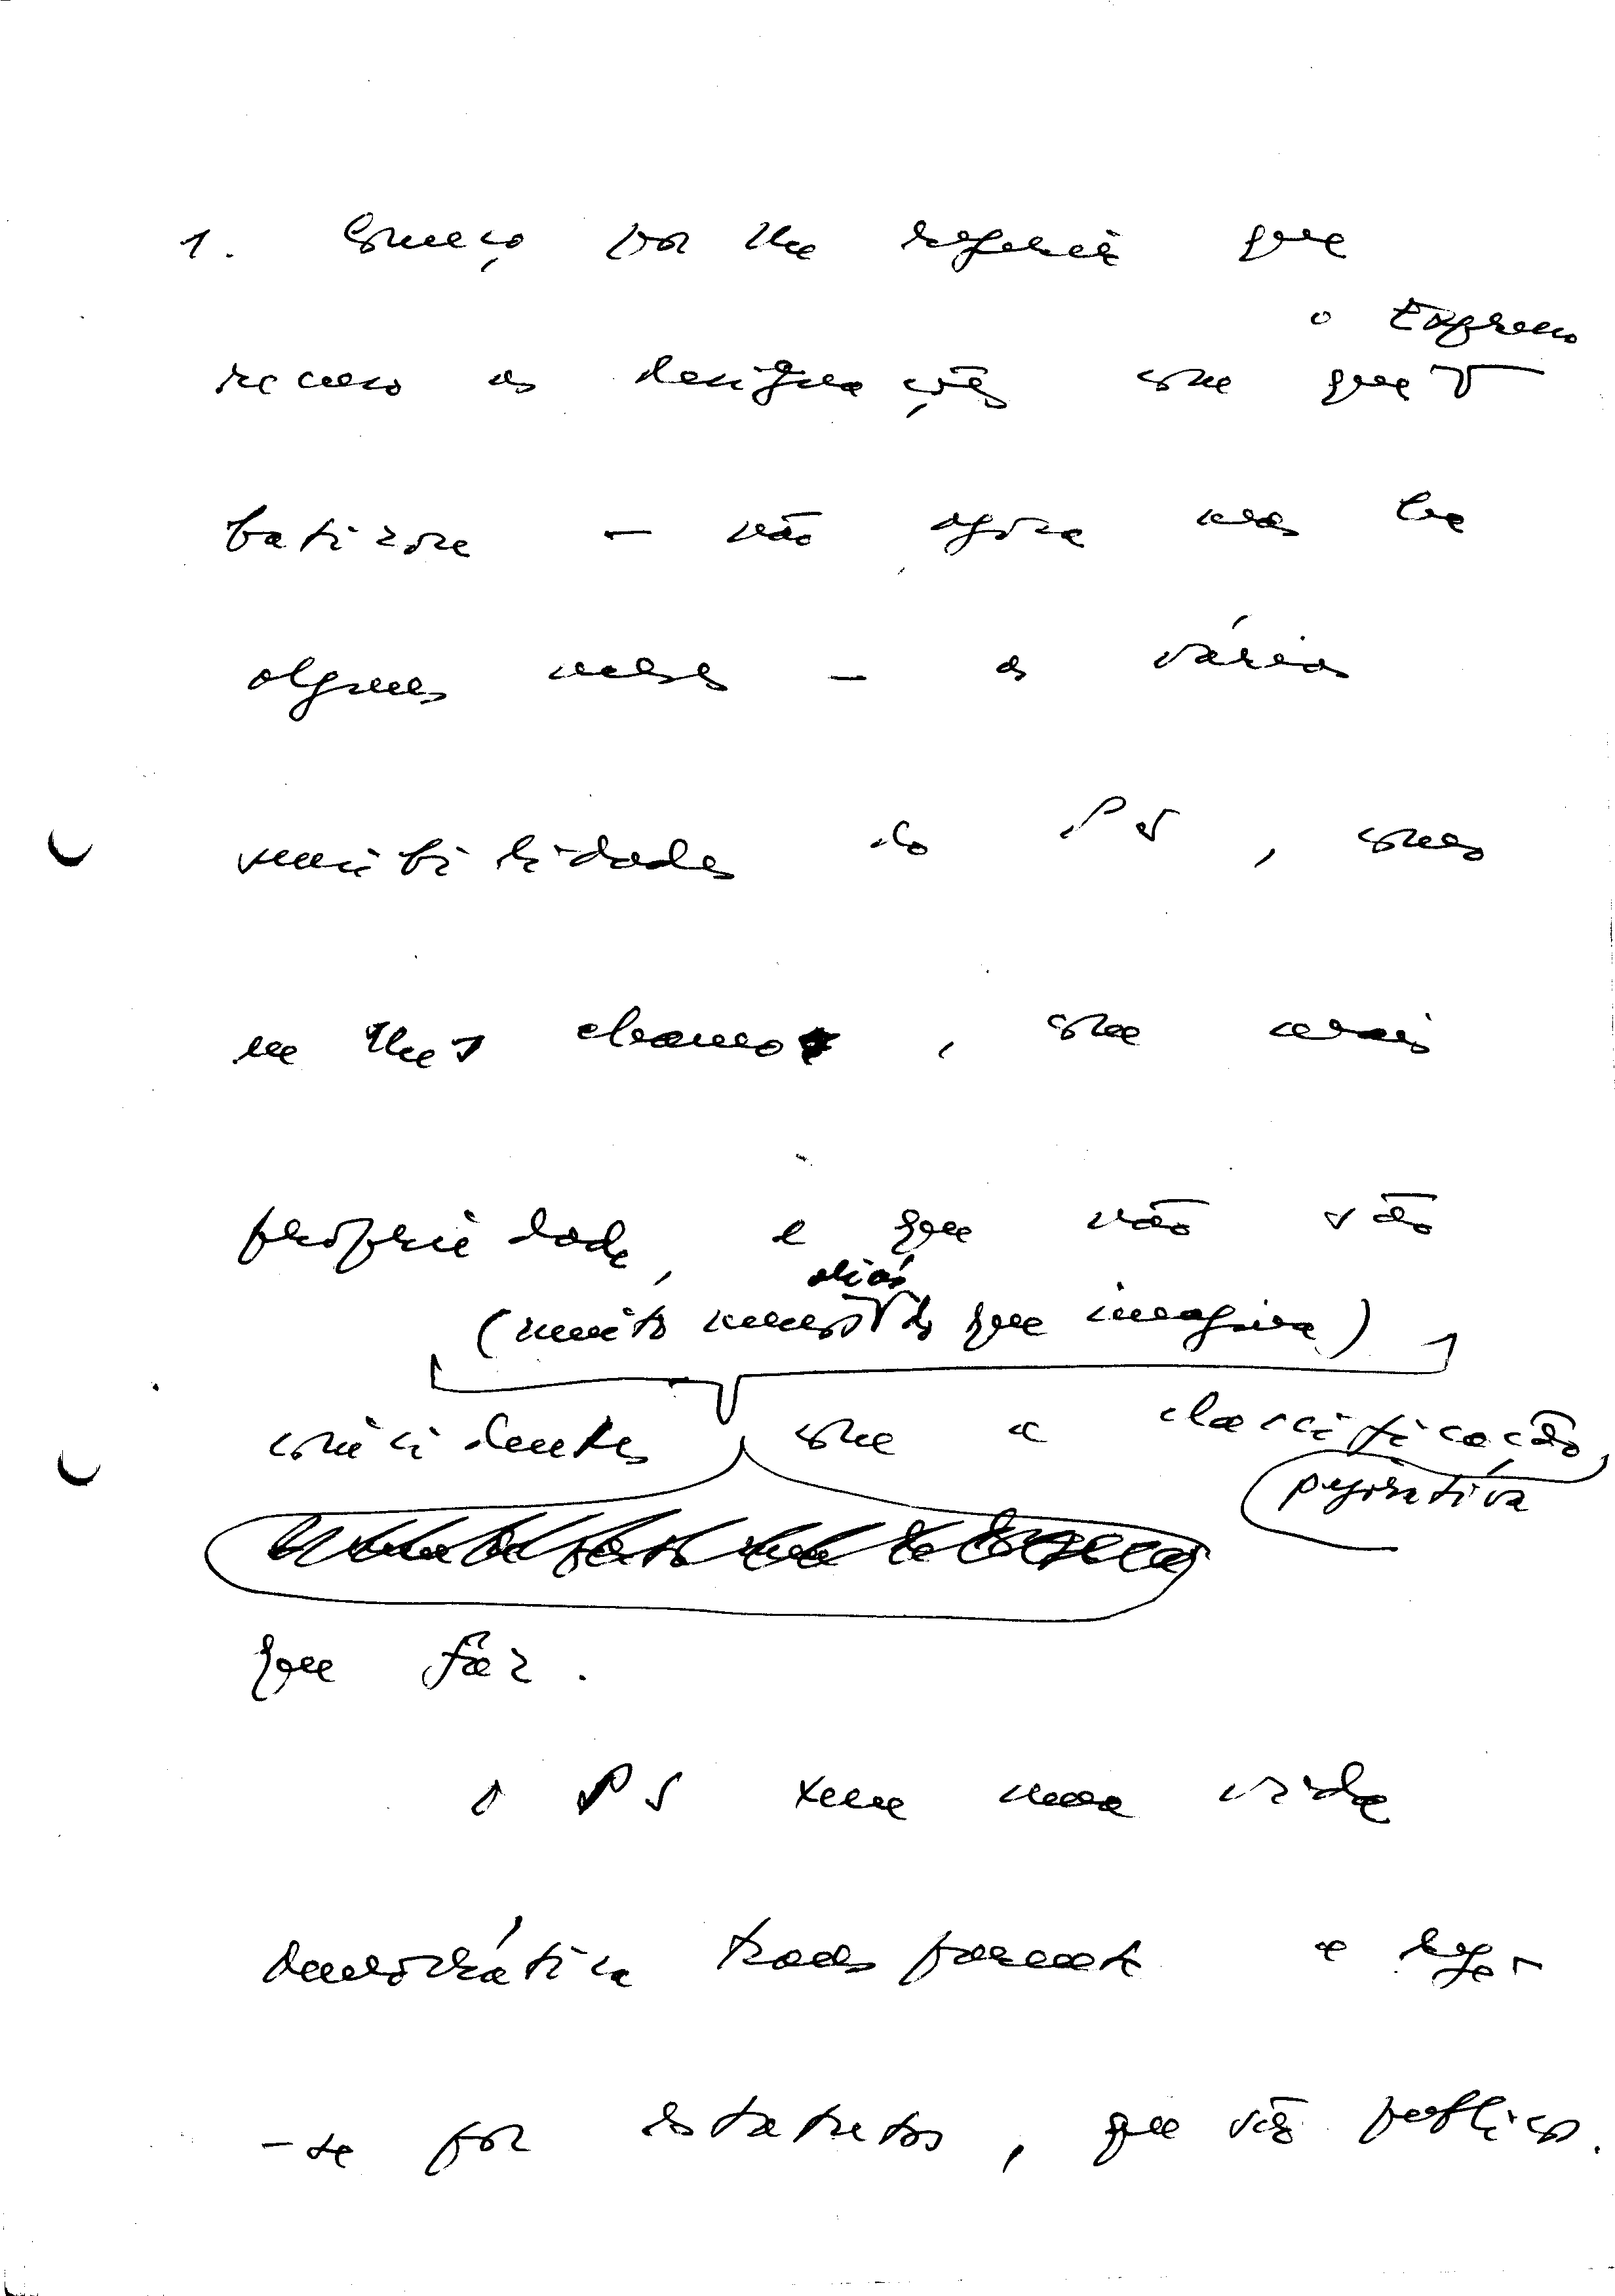 1. Começo por lhe referir que
o Expresso
recuso as designações com que
batizou - não agora mas há
alguns meses - as várias
sensibilidades do PS, como
eu lhes chamo, com mais
propriedade, e que não são
aliás
(muito menos do que imagina)
coincidentes com a classificação
pejorativa
que faz.
O PS tem uma vida
democrática transparente e rege-
-se por estatutos, que são públicos.